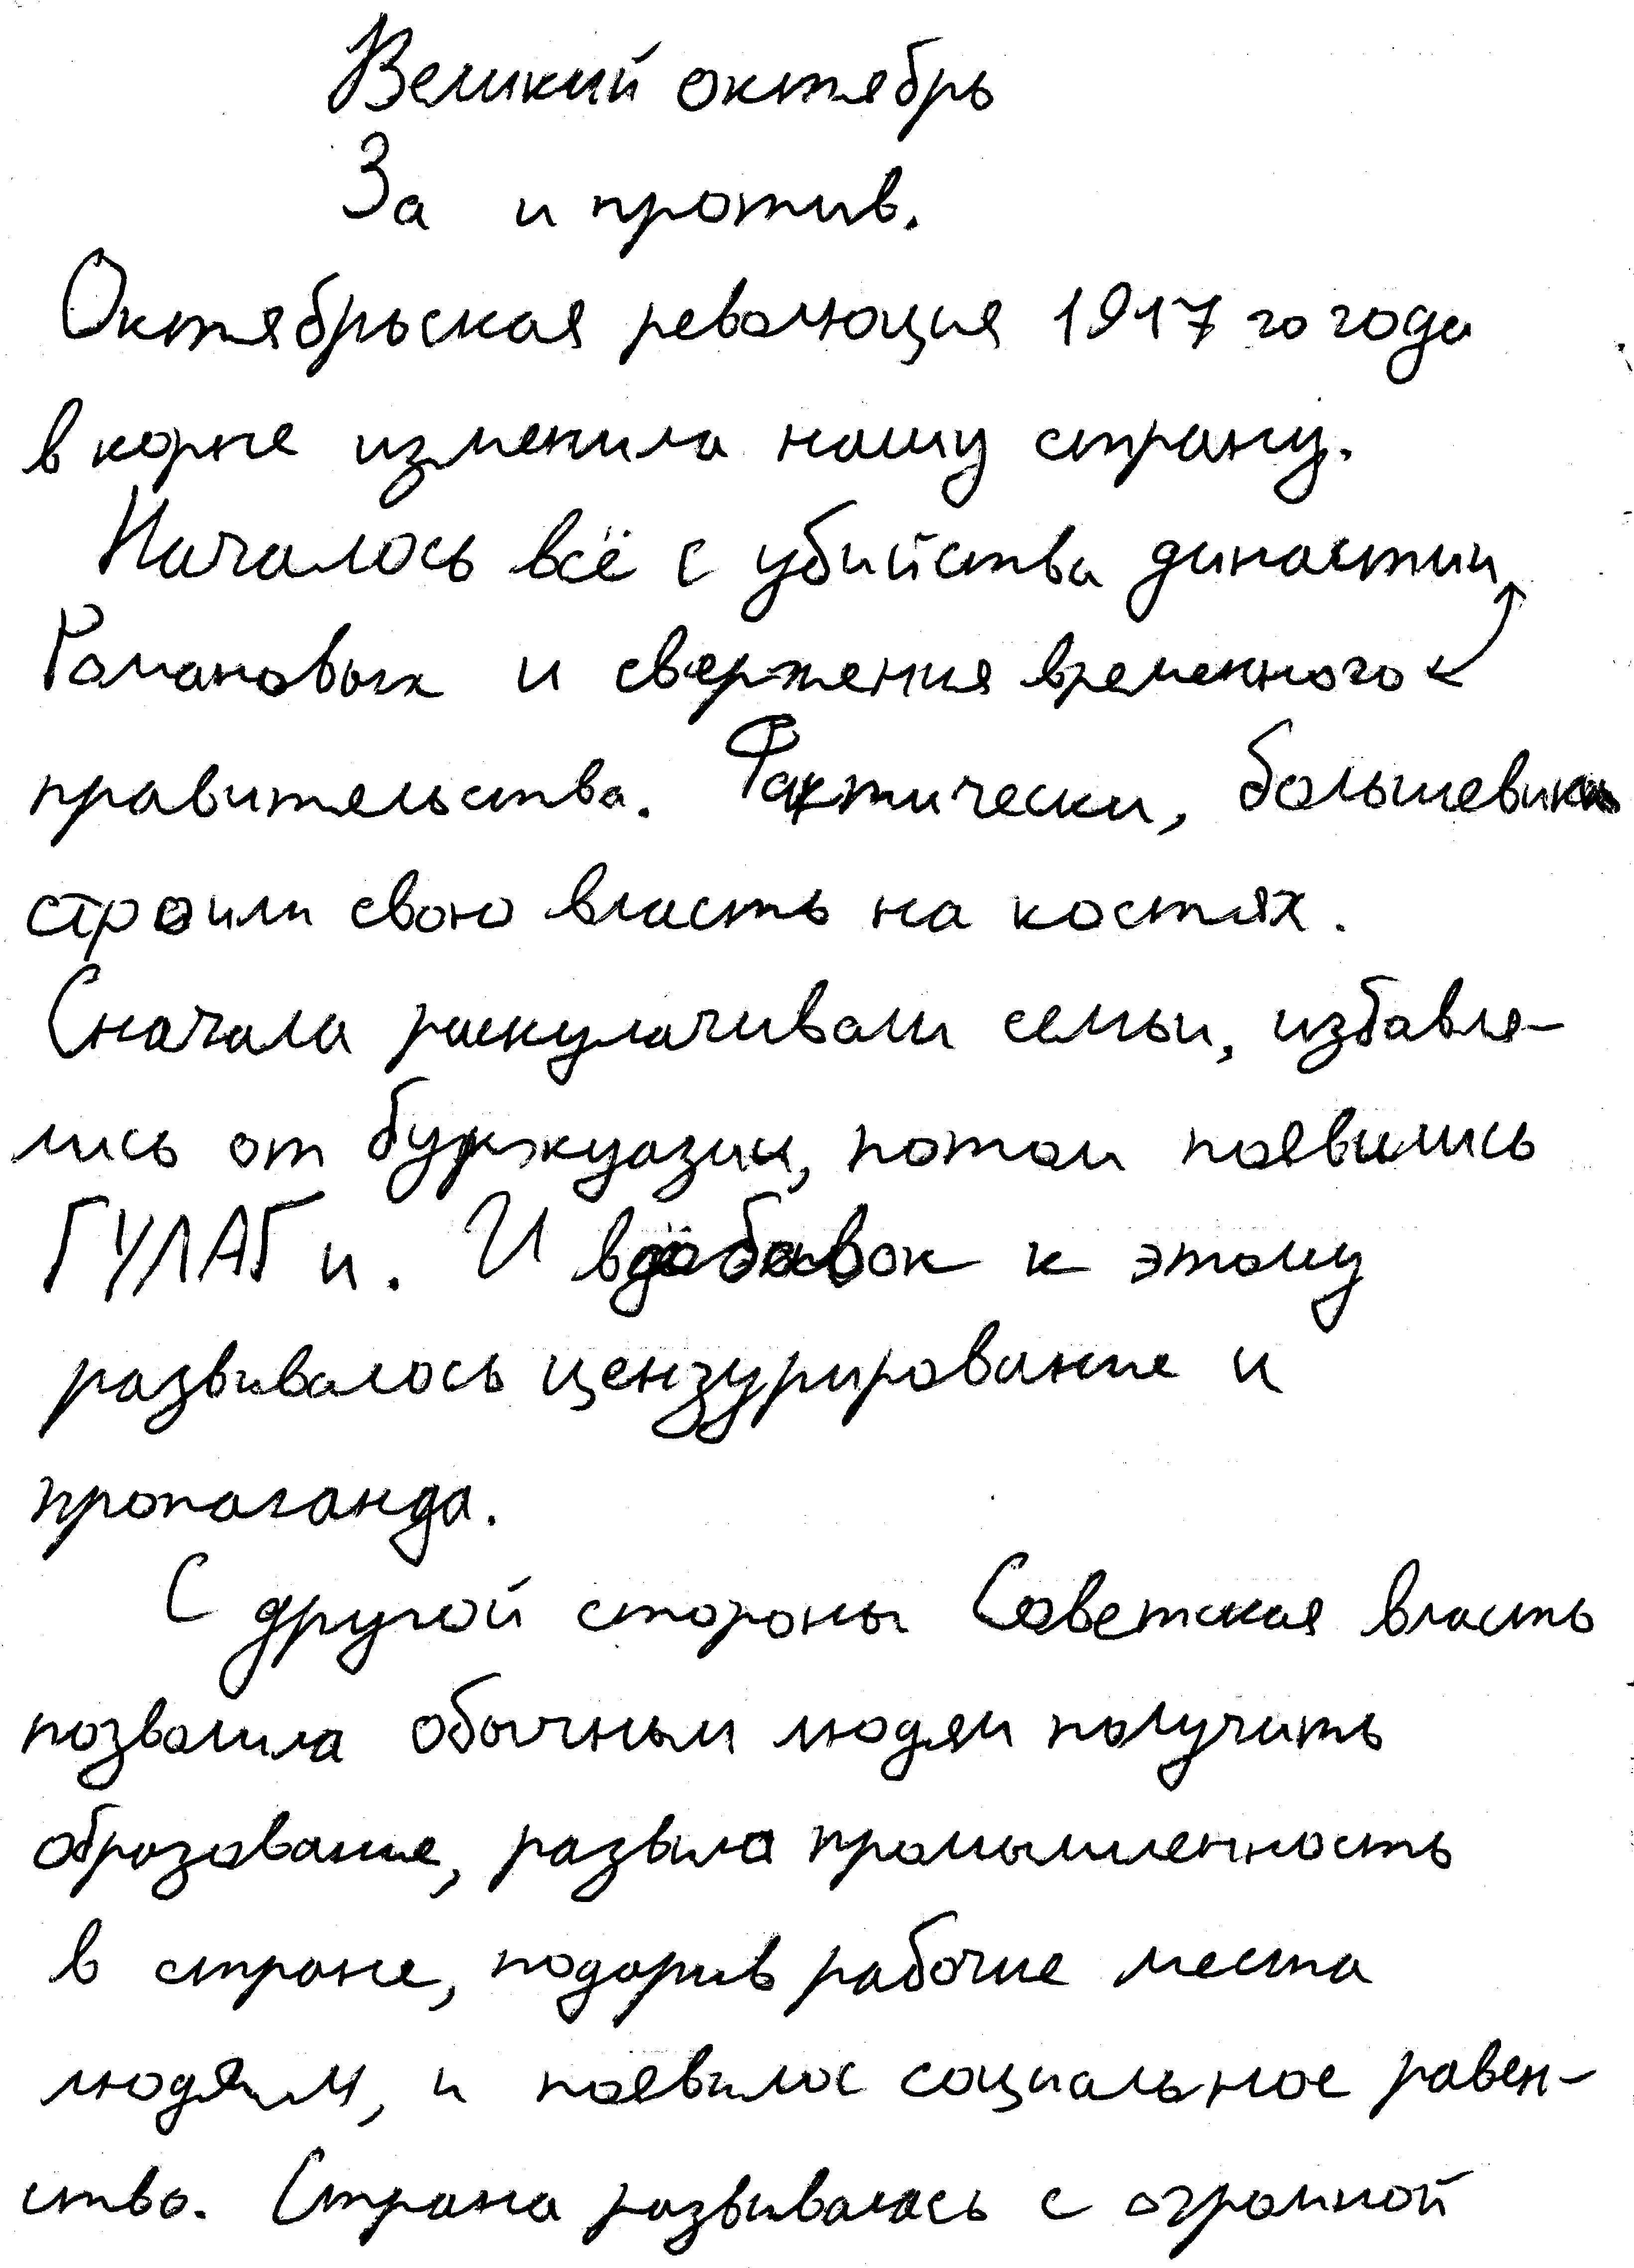 Великий октябрь
За и против.
Октябрьская революция 1917 го года
в корне изменила нашу страну.
Началось всё с убийства династии
Романовых и свержения временного
правительства. Фактически, большевики
строили свою власть на костях.
Сначала раскулачивали семьи, избавля-
лись от буржуазии, потом появились
ГУЛАГи. И вдобавок к этому
развивалось цензурирование и
пропаганда.
С другой стороны Советская власть
позволила обычным людям получить
образование, развила промышленность
в стране, подарив рабочие места
людям, и появилос социальное равен-
ство. Страна развивалась с огромной